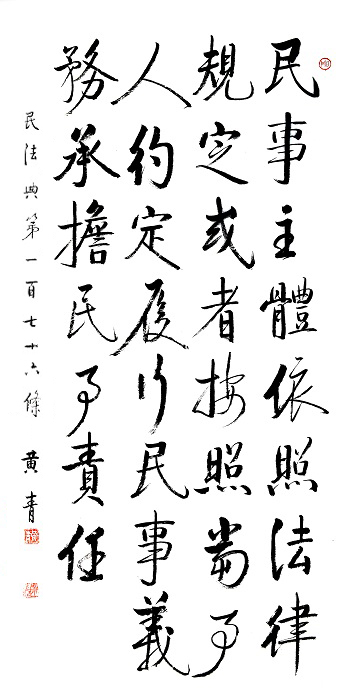 民事主體依照法律
規定或者按照當事
人約定履行民事義
務承擔民事責任
民法典第一百七十六條 黄青